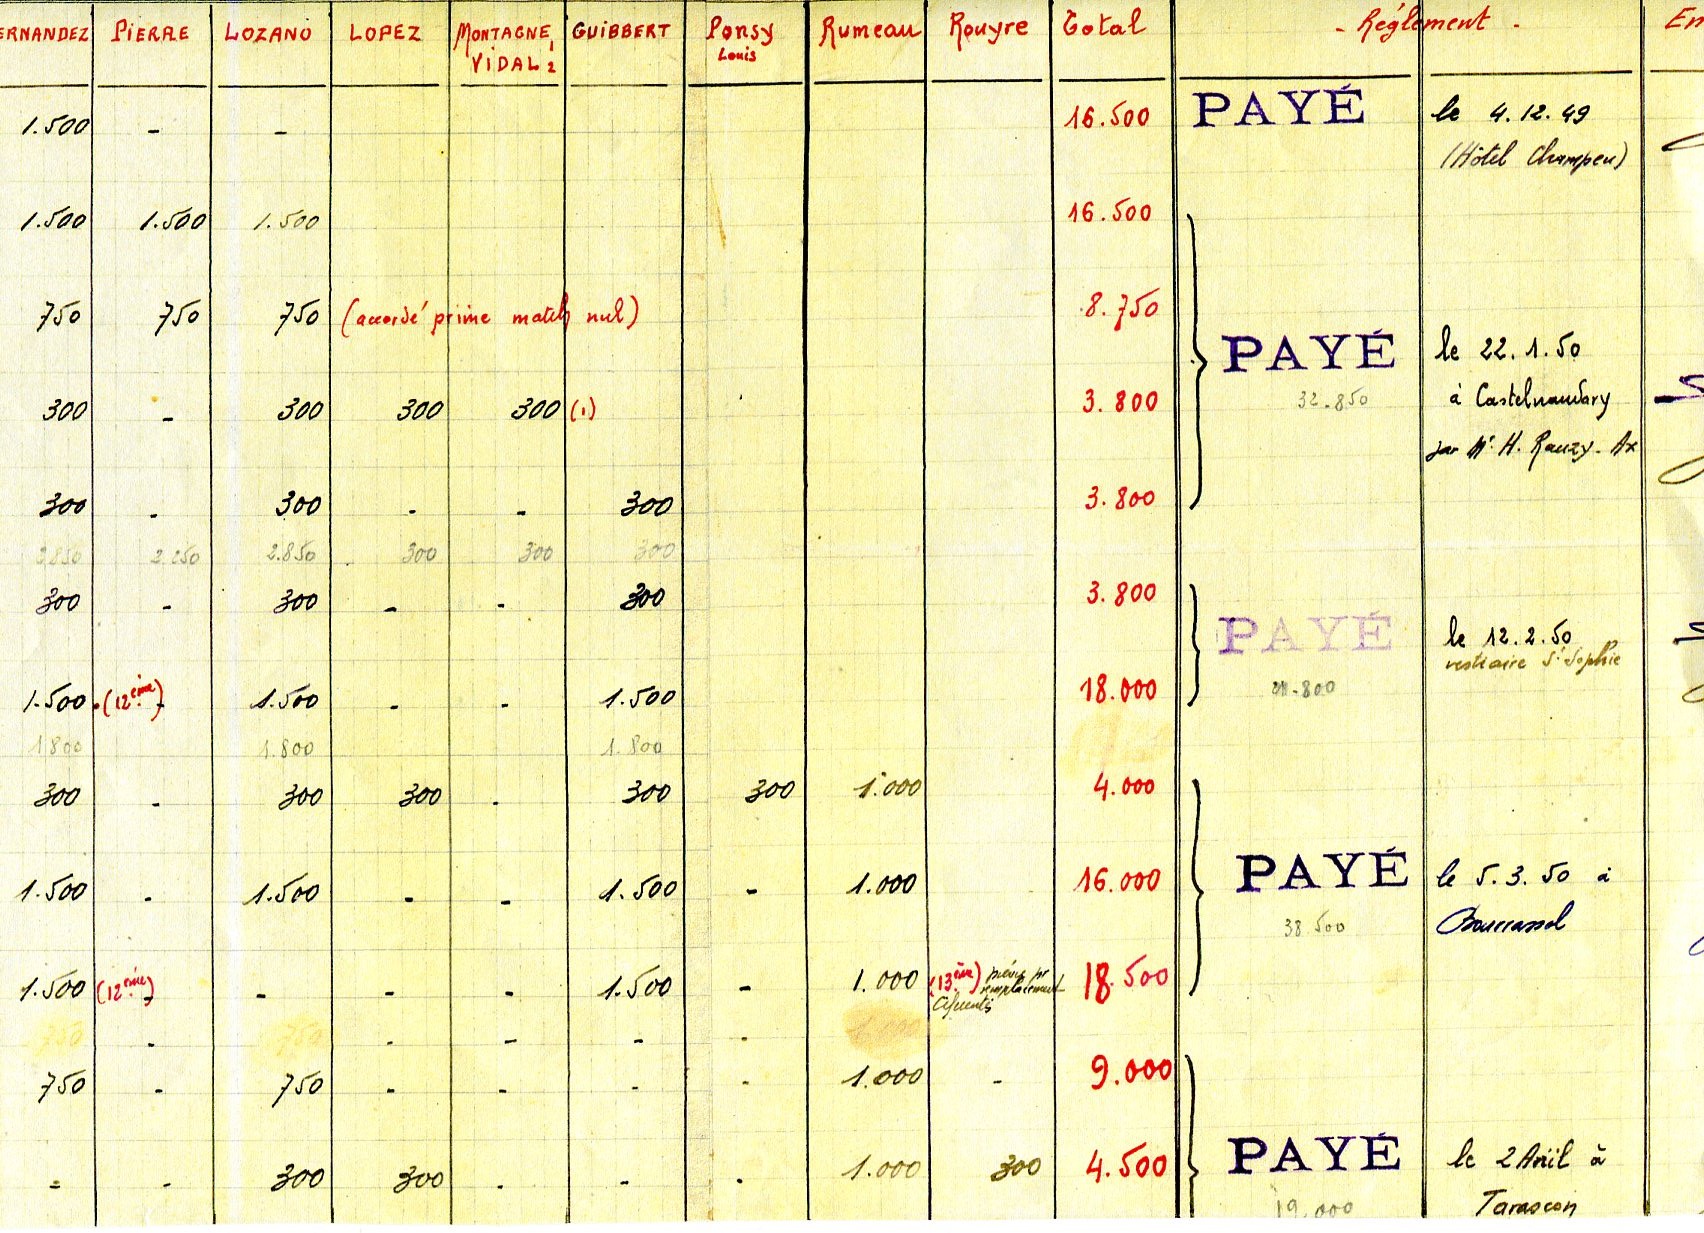 ERNANDEZ PIERRE LOZANO LOPEZ MONTAGNE 1 GUIBBERT Ponsy Rumeau Rouyre Total - Réglement - Em
VIDAL 2 Louis
1.500 - - 16.500 PAYÉ le 4.12.49
(Hôtel Champeu)
1.500 1.500 1.500 16.500
750 750 750 (accordé prime match nul) 8.750
PAYÉ le 22.1.50
300 - 300 300 300 (1) 3.800 32.850 à Castelnaudary
par Mr H. Rauzy. Ax
300 - 300 - - 300 3.800
2.850 2.250 2.850 300 300 300
300 - 300 - - 300 3.800
PAYÉ le 12.2.50
vestiaire St Sophie
1.500 (12ème) - 1.500 - - 1.500 18.000 21.800
1.800 1.800 1.800
300 - 300 300 - 300 300 1.000 4.000
1.500 - 1.500 - - 1.500 - 1.000 16.000 PAYÉ le 5.3.50 à
38 500
1.500 (12ème) - - - - 1.500 - 1.000 (13ème) prévu pr 18.500
remplacement
Cifuentès
750 - 750 - - - - 1.000
750 - 750 - - - - 1.000 - 9.000
- - 300 300 - - - 1.000 300 4.500 PAYÉ le 2 Avril à
19.000 Tarascon